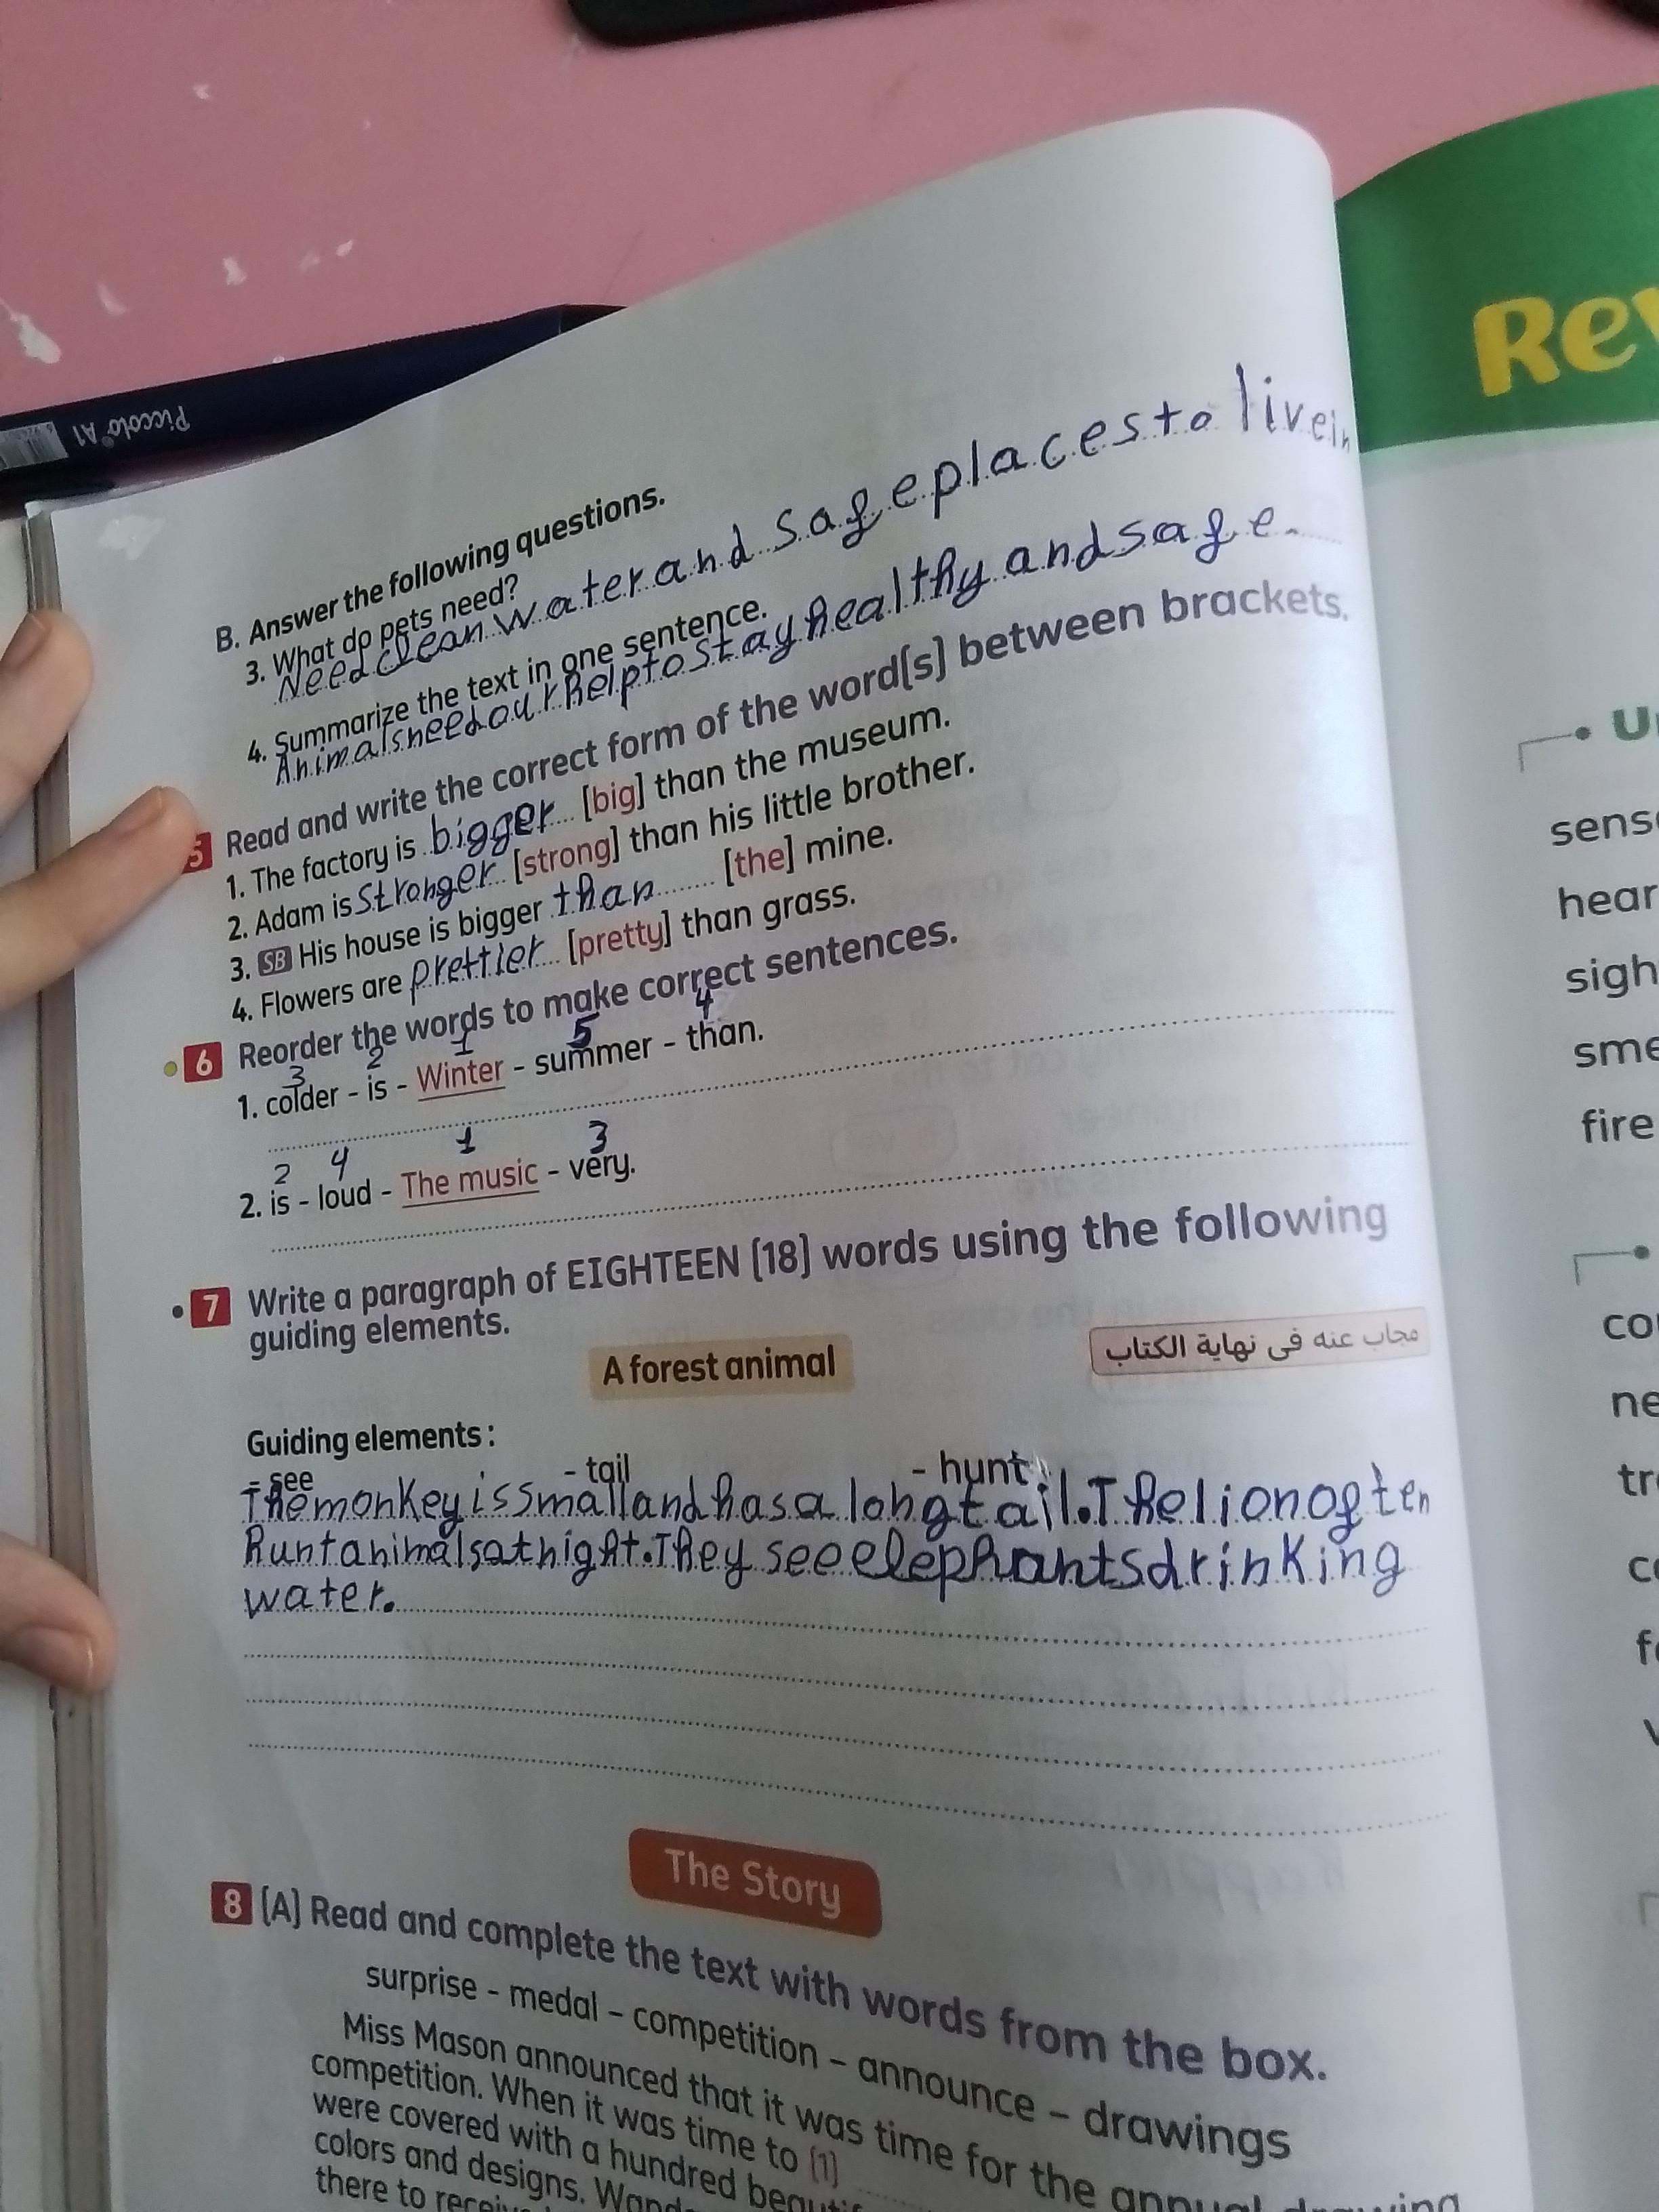 Piccolo A1
Rev
B. Answer the following questions.
3. What do pets need?
Need clean water and safe places to live in
4. Summarize the text in one sentence.
Animals need our help to stay healthy and safe.
5 Read and write the correct form of the word[s] between brackets.
1. The factory is bigger [big] than the museum.
2. Adam is stronger [strong] than his little brother.
3. SB His house is bigger than [the] mine.
4. Flowers are prettier [pretty] than grass.
6 Reorder the words to make correct sentences.
3 2 1 5 4
1. colder - is - Winter - summer - than.
2 4 1 3
2. is - loud - The music - very.
7 Write a paragraph of EIGHTEEN [18] words using the following
guiding elements.
A forest animal
مجاب عنه فى نهاية الكتاب
Guiding elements :
- see - tail - hunt
The monkey is small and has a long tail. The lion often
hunt animals at night. They see elephants drinking
water.
The Story
8 [A] Read and complete the text with words from the box.
surprise - medal - competition - announce - drawings
Miss Mason announced that it was time for the annual drawing
competition. When it was time to [1]
were covered with a hundred
colors and designs.
there to
sens
hear
sigh
sme
fire